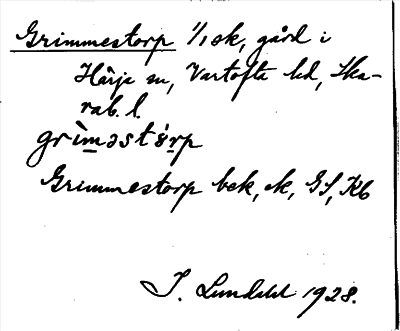 Grimmestorp 1/1 sk, gård i
Härja sn, Vartofta hd, Ska-
rab. l.
grìməstórp
Grimmestorp bek, ek, GS, Kb
I. Lundahl 1928.